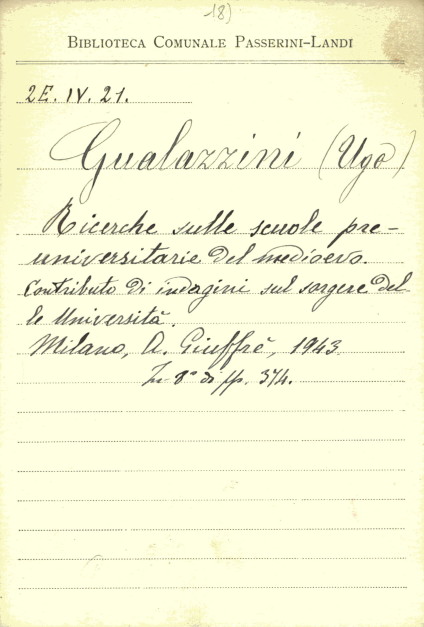 18)
BIBLIOTECA COMUNALE PASSERINI-LANDI
2E. IV. 21.
Gualazzini (Ugo)
Ricerche sulle scuole pre-
universitarie del medioevo.
Contributo di indagini sul sorgere del-
le Università.
Milano, A. Giuffrè, 1943
In 8° di pp. 374.